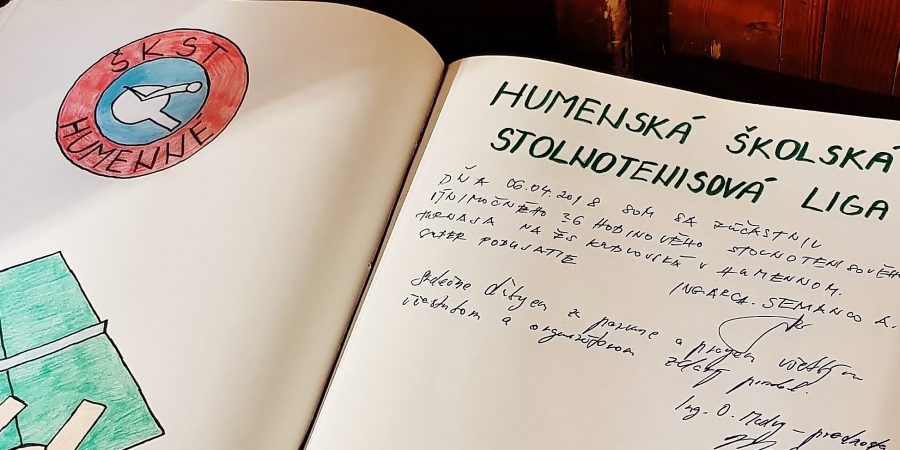 ŠKST
HUMENNÉ
HUMENSKÁ ŠKOLSKÁ
STOLNOTENISOVÁ LIGA
DŇA 06.04.2018 SOM SA ZÚČASTNIL
36 HODINOVÉHO STOLNOTENISOVÉHO
TURNAJA NA ZŠ KUDLOVSKÁ V HUMENNOM.
SUPER PODUJATIE
ING.ARCH. SEMANCO A.
Srdečne ďakujem za pozvanie a prajem všetkým
a organizátorom
Ing. O.